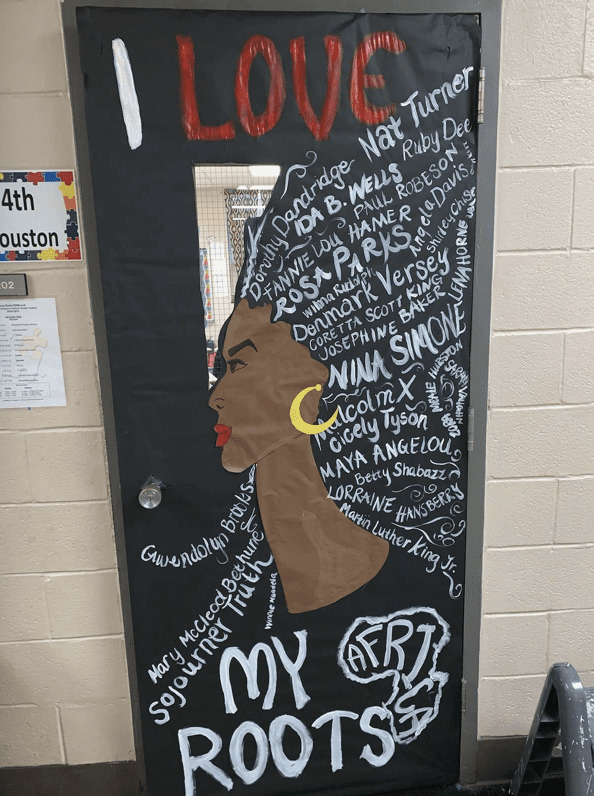 I LOVE
Nat Turner
Ruby Dee
Dorothy Dandridge
IDA B. WELLS
PAUL ROBESON
FANNIE LOU HAMER
Angela Davis
ROSA PARKS
Shirley Chis
Wilma Rudolph
Denmark Versey
LENA HORNE
CORETTA SCOTT KING
JOSEPHINE BAKER
NINA SIMONE
Malcolm X
Cicely Tyson
MAYA ANGELOU
Betty Shabazz
LORRAINE HANSBERRY
Martin Luther King Jr.
Gwendolyn Brooks
Mary McCleod Bethune
Sojourner Truth
Winnie Mandela
MY
AFRICA
ROOTS
4th
ouston
02